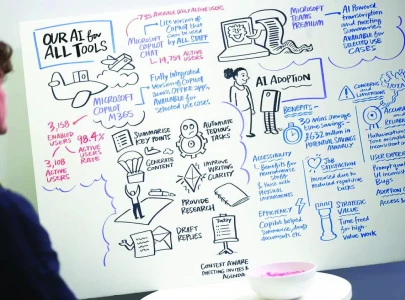 OUR AI for
ALL TOOLS
755 AVERAGE DAILY ACTIVE USERS
MICROSOFT
COPILOT
CHAT
Lite version of
Copilot that
can be used
by ALL STAFF
14,759 ACTIVE
USERS
MICROSOFT
TEAMS
PREMIUM
AI Powered
transcription
and meeting
Summaries
AVAILABLE for
SELECTED USE
CASES
MICROSOFT
COPILOT
M365
Fully Integrated
Version of Copilot
across Office apps.
AVAILABLE for
selected use cases
3,158
ENABLED
USERS
98.4%
ACTIVE
USERS
RATE
3,108
ACTIVE
USERS
SUMMARISE
KEY POINTS
AUTOMATE
TEDIOUS
TASKS
GENERATE
CONTENT
IMPROVE
WRITING
CLARITY
PROVIDE
RESEARCH
DRAFT
REPLIES
CONTEXT AWARE
MEETING INVITES &
AGENDAS
AI ADOPTION
BENEFITS
30 mins Savings
£632 million
POTENTIAL SAVINGS
ANNUALLY
ACCESSIBILITY
Benefits for
neurodiverse
& those with
JOB
SATISFACTION
Increased due to
reduced repetitive
tasks
EFFICIENCY
Copilot helped
Summarise, draft
documents etc
STRATEGIC
VALUE
Time freed
for high
value work
CONCERNS and